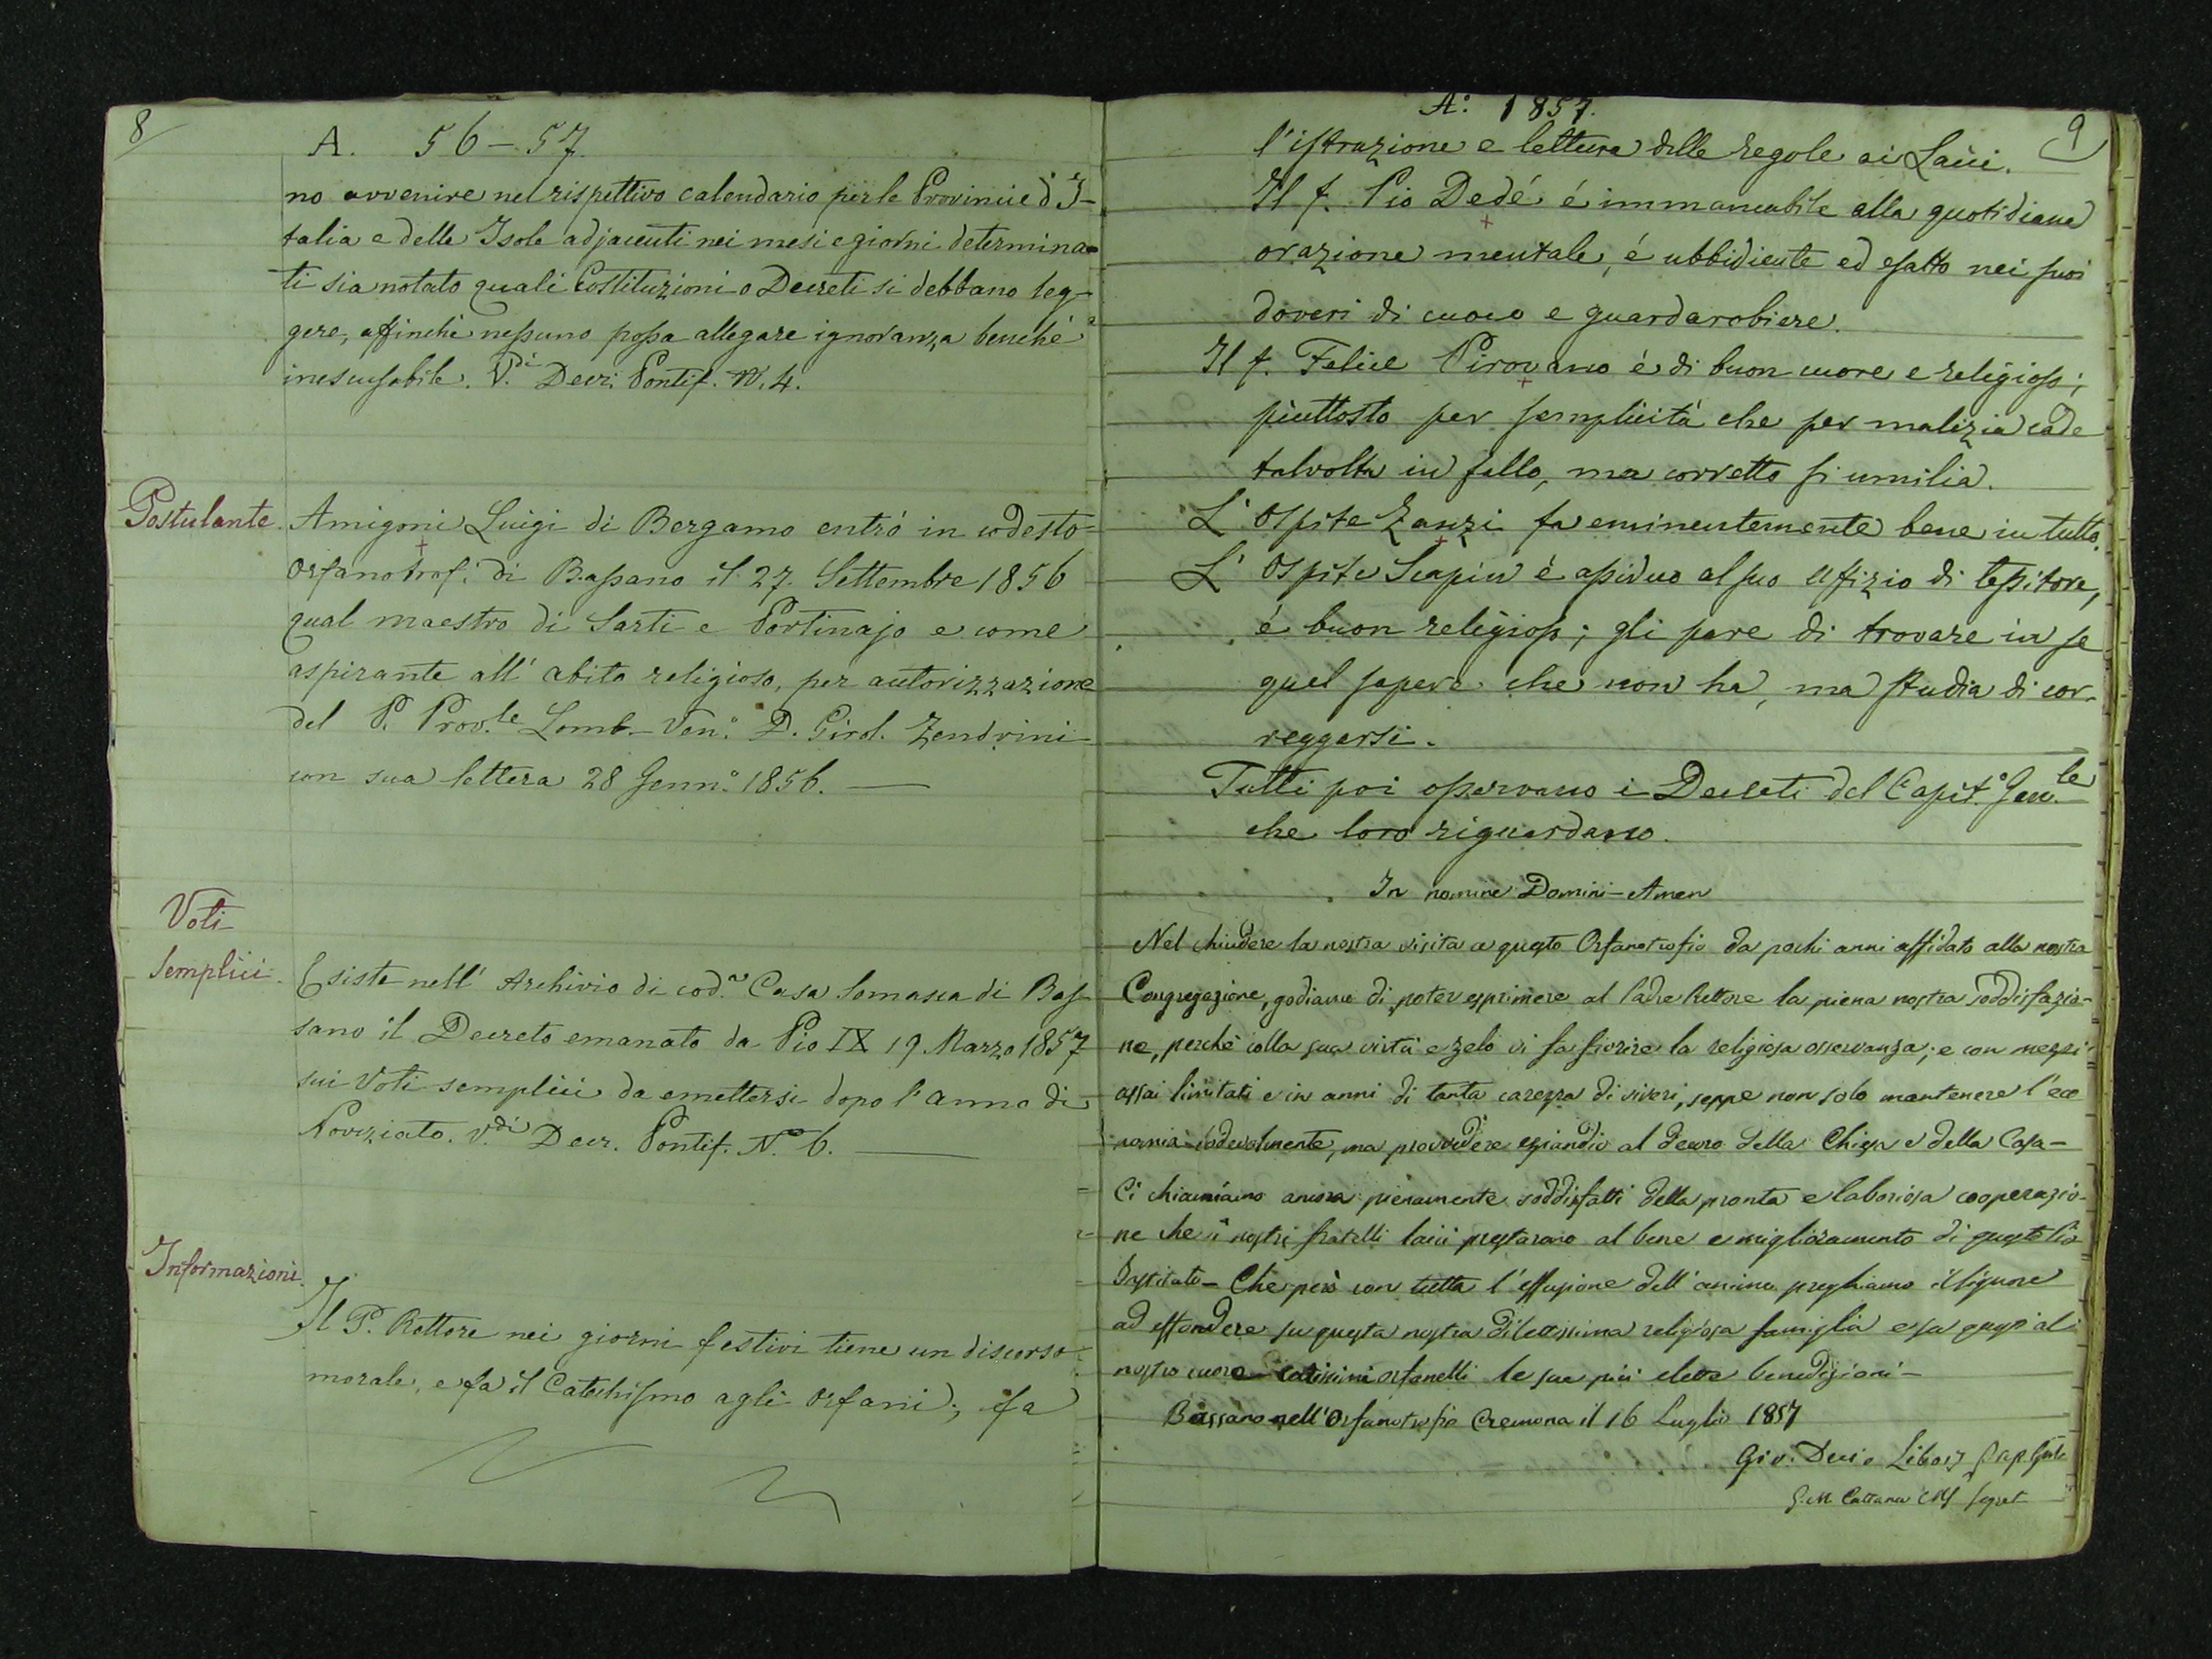 8
A. 56-57.
no avvenire nel rispettivo calendario per le Provincie d'I-
talia e delle Isole adjacenti nei mesi e giorni determina-
ti sia notato quali Costituzioni o Decreti si debbano leg-
gere, affinchè nessuno possa allegare ignoranza benchè
inescusabile. V.di Decr. Pontif. N. 4.
Postulante.
Amigoni Luigi di Bergamo entrò in codesto
Orfanotrof. di Bassano il 27. Settembre 1856
qual maestro di Sarti e Portinajo e come
aspirante all' abito religioso, per autorizzazione
del P. Prov.le Lomb-Ven.° D. Girol. Zendrini
con sua lettera 28 Genn.° 1856.
Voti
Semplici.
Esiste nell' Archivio di cod.a Casa Somasca di Bas
sano il Decreto emanato da Pio IX 19. Marzo 1857
sui Voti semplici da emettersi dopo l'anno di
Noviziato. V.di Decr. Pontif. N.° 6.
Informazioni.
Il P. Rettore nei giorni festivi tiene un discorso
morale, e fa il Catechismo agli Orfani; fa
A.° 1857.
9
l'istruzione e lettura delle regole ai Laici.
Il f. Pio Dedé é immancabile alla quotidiana
orazione mentale, é ubbidiente ed esatto nei suoi
doveri di cuoco e guardarobiere.
Il f. Felice Pirovano é di buon cuore e religioso;
piuttosto per semplicità che per malizia cade
talvolta in fallo, ma corretto si umilia.
L' Ospite Zanzi fa eminentemente bene in tutto.
L' Ospite Scapin é assiduo al suo uffizio di tessitore,
é buon religioso; gli pare di trovare in se
quel sapere che non ha, ma studia di cor-
reggersi.
Tutti poi osservano i Decreti del Capit.° Gen.le
che loro riguardano.
In nomine Domini - Amen
Nel chiudere la nostra visita a questo Orfanotrofio da pochi anni affidato alla nostra
Congregazione, godiamo di poter esprimere al Padre Rettore la piena nostra soddisfazio-
ne, perchè colla sua virtù e zelo vi fa fiorire la religiosa osservanza; e con mezzi
assai limitati e in anni di tanta carezza di viveri, seppe non solo mantenere l'eco
nomia lodevolmente, ma provvedere eziandio al decoro della Chiesa e della Casa-
Ci chiamiamo ancora pienamente soddisfatti della pronta e laboriosa cooperazio-
ne che i nostri fratelli laici prestarono al bene e miglioramento di questo Pio
Istituto- Che però con tutta l'effusione dell'animo preghiamo il Signore
ad effondere su questa nostra dilettissima religiosa famiglia e su questi al
nostro cuore carissimi orfanelli le sue più elette benedizioni-
Bassano nell'Orfanotrofio Cremona il 16 Luglio 1857
Gio. Decio Libois Prep. Gnle
Segret